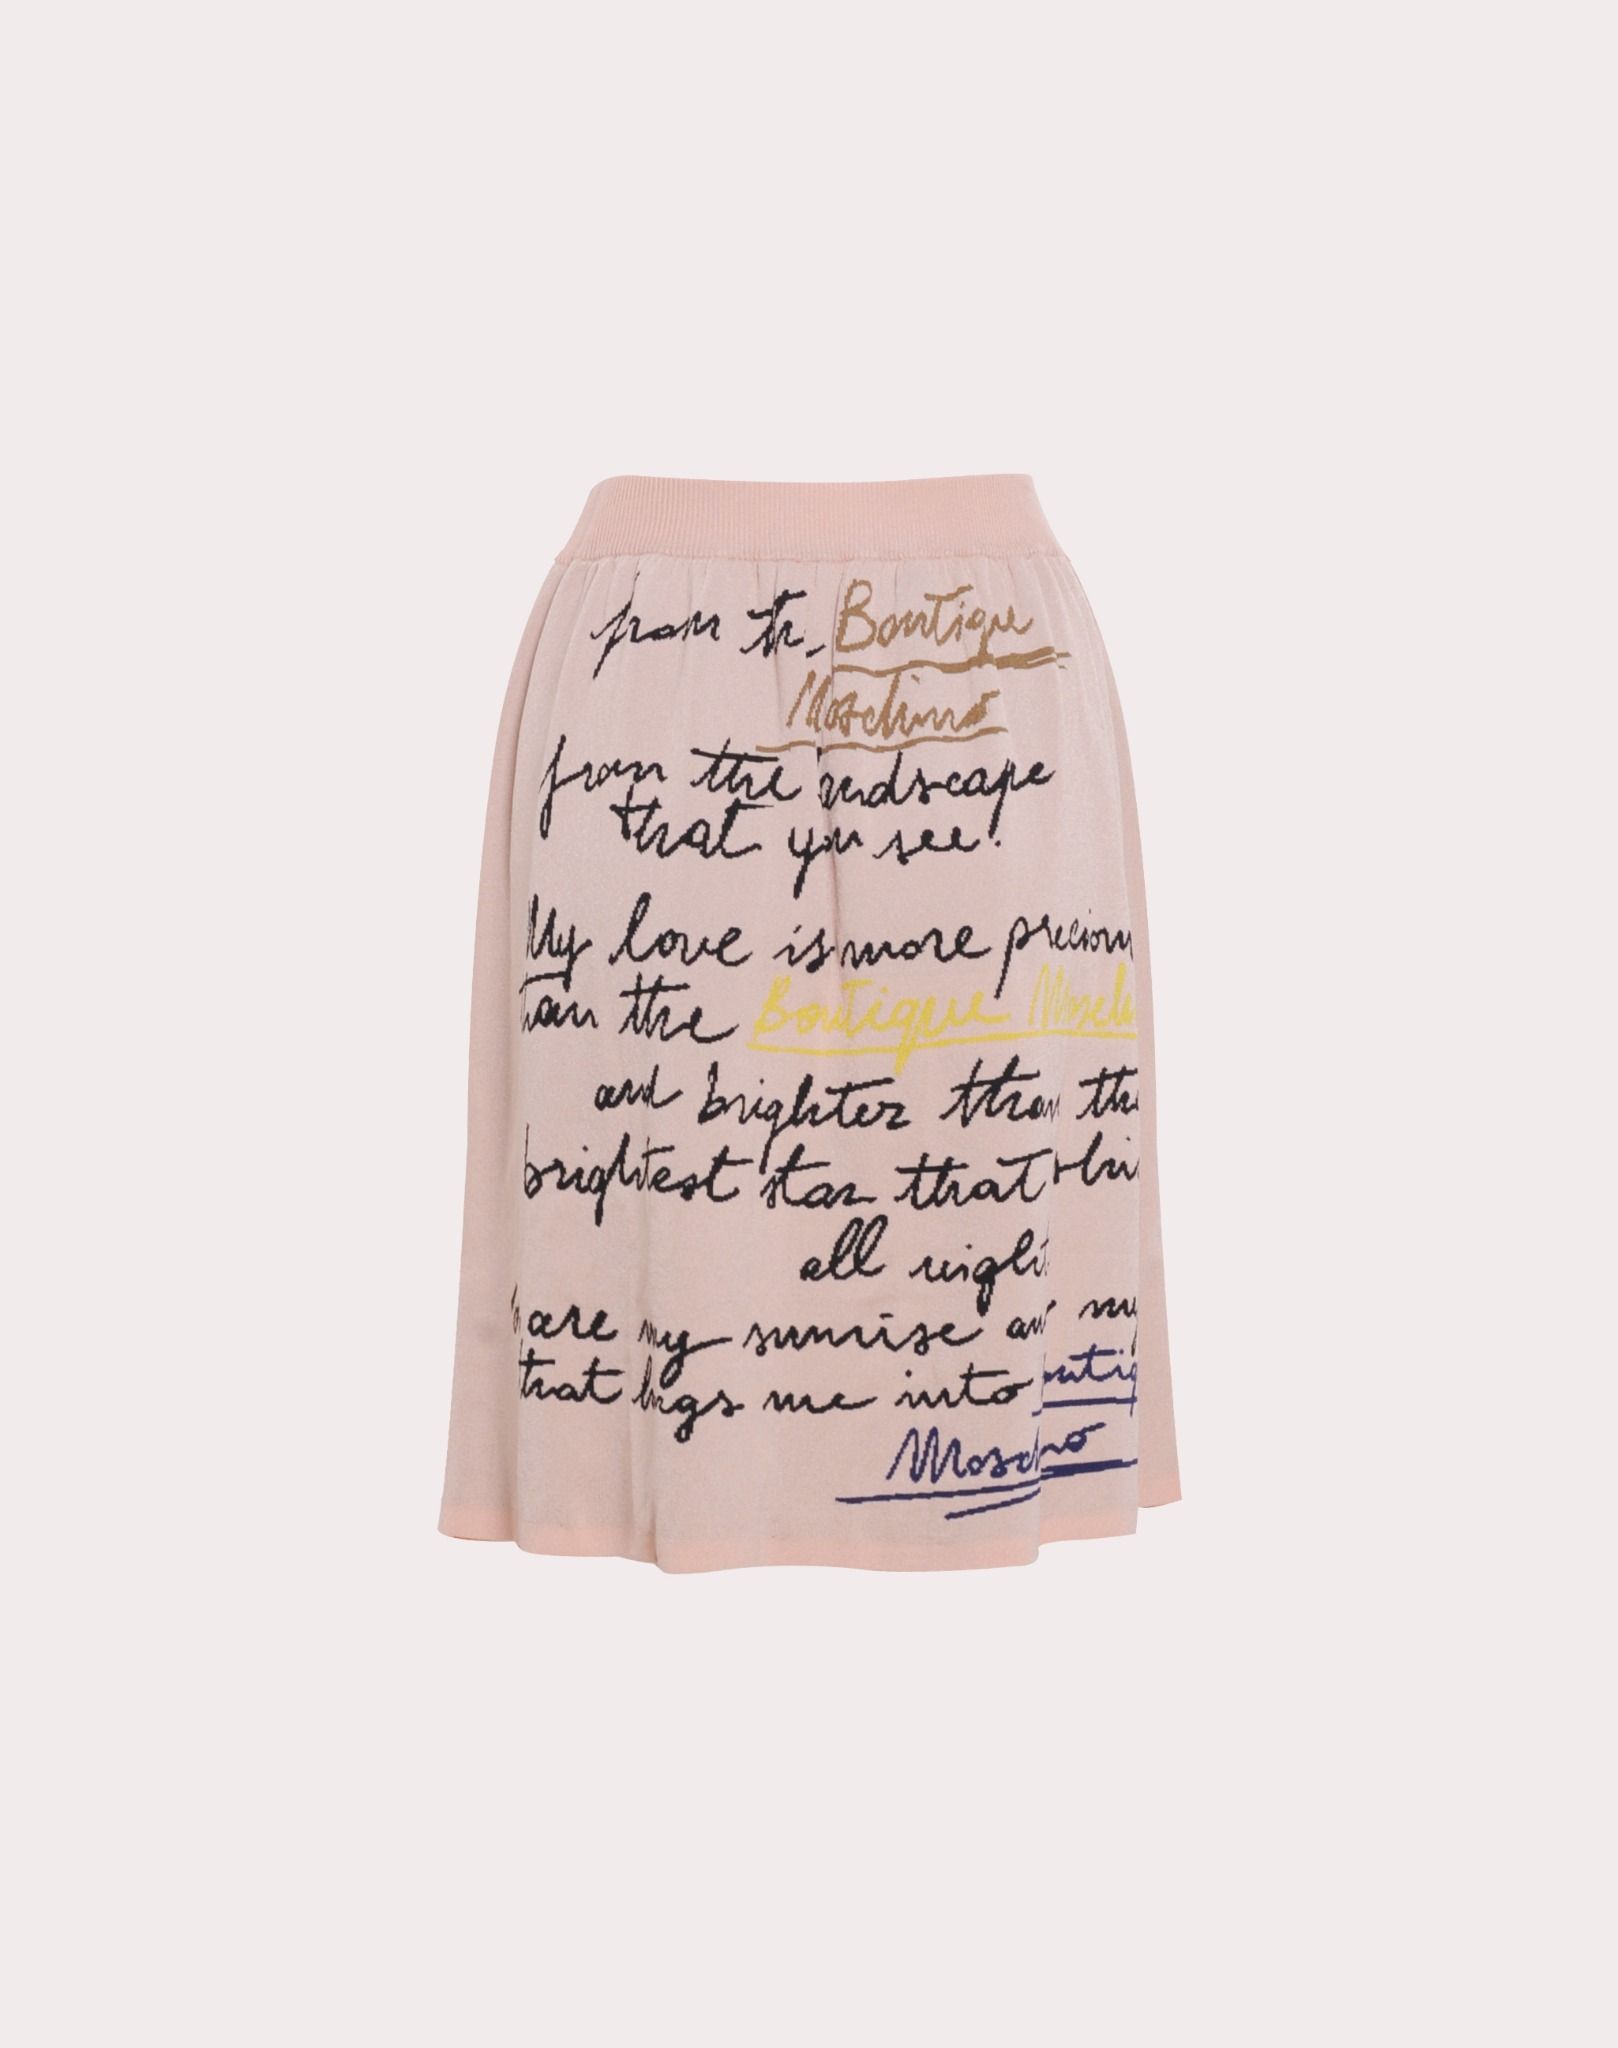 from th Boutique
Moschino
from the andscape
that you see!
My love is more precious
than the Boutique Mosch
and brighter than the
brightest star that shi
all night
are my sunrise and my
that b ngs me into outiq
Moschino